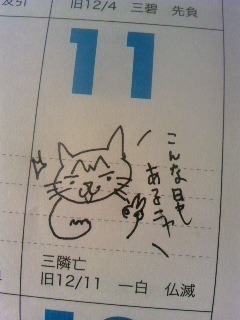 友引
旧12/4 三碧 先負
11
こんな日も
あるニャ
三隣亡
旧12/11 一白 仏滅